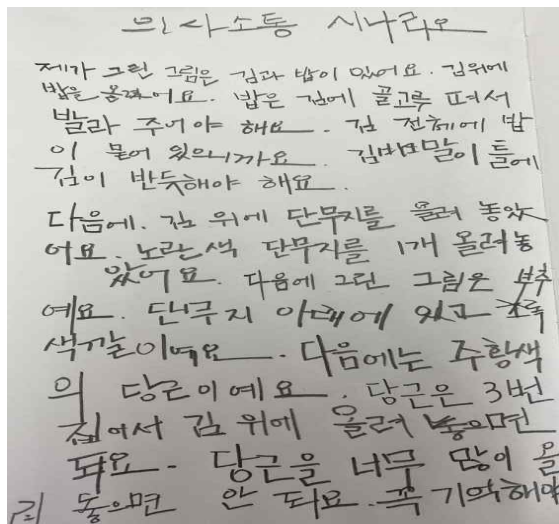 의사소통 시나리오
제가 그린 그림은 김과 밥이 있어요. 김위에
밥은 올렸어요. 밥은 김에 골고루 펴서
발라 주어야 해요. 김 전체에 밥
이 묻어 있으니까요. 김밥말이 틀에
김이 반듯해야 해요.
다음에. 김 위에 단무지를 올려 놓았
어요. 노란색 단무지를 1개 올려놓
았어요. 다음에 그린 그림은 부추
예요. 단무지 아래에 있고 초록
색깔이예요. 다음에는 주황색
의 당근이예요. 당근은 3번
집어서 김 위에 올려 놓으면
되요. 당근을 너무 많이 올
려 놓으면 안 되요. 꼭 기억해야